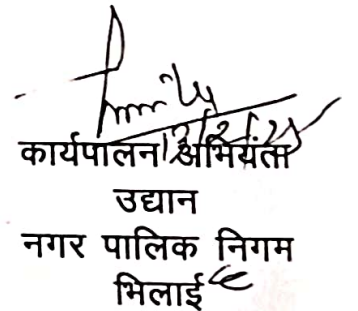 कार्यपालन अभियंता
उद्यान
नगर पालिक निगम
भिलाई